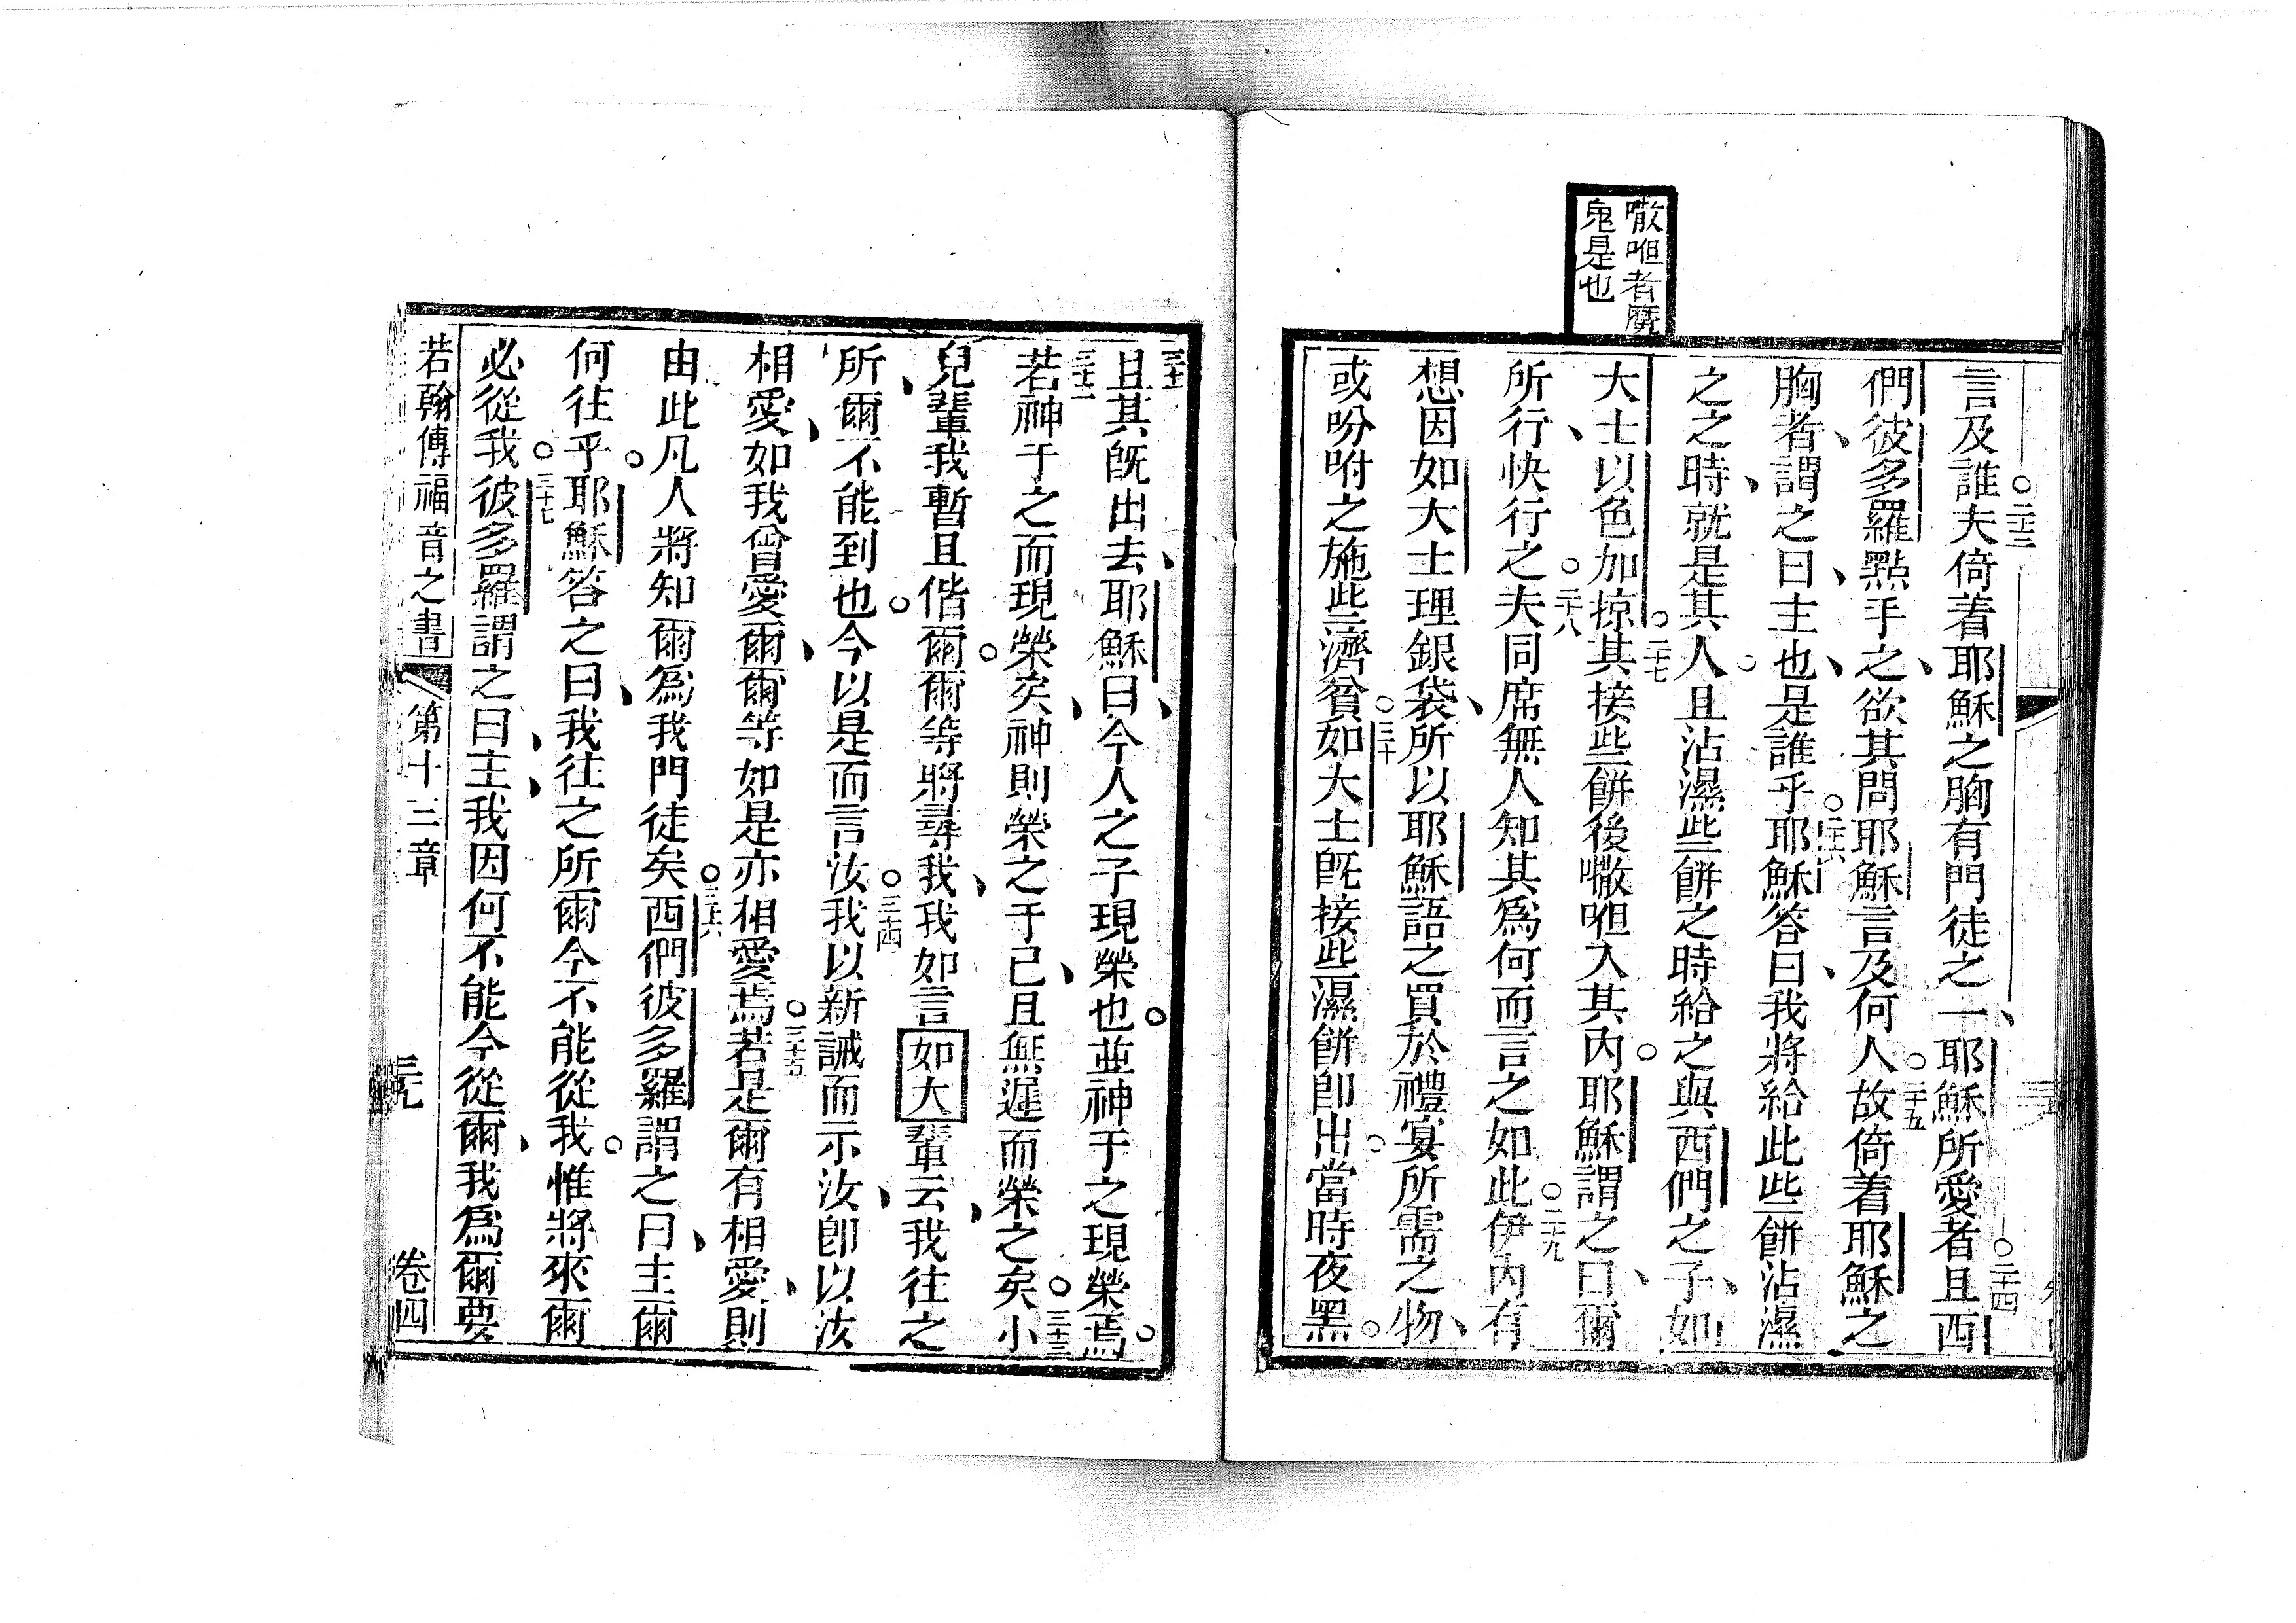 嘋呾者魔
鬼是也
言及誰夫倚着耶穌之胸有門徒之一耶穌所愛者且西
○二十三
○二十四
們彼多羅點手之欲其問耶穌言及何人故倚着耶穌之
○二十五
胸者謂之曰主也是誰乎耶穌答曰我將給此些餅沾濕
○二十六
之之時就是其人且沾濕些餅之時給之與西們之子如
大士以色加掠其接些餅後嘋呾入其內耶穌謂之曰爾
○二十七
所行快行之夫同席無人知其為何而言之如此伊內有
○二十八
○二十九
想因如大士理銀袋所以耶穌語之買於禮宴所需之物
或吩咐之施些濟貧如大士旣接些濕餅卽出當時夜黑
○三十
且其旣出去耶穌曰今人之子現榮也並神于之現榮焉
三十一
若神于之而現榮矣神則榮之于己且無遲而榮之矣小
三十二
○三十三
兒輩我暫且偕爾爾等將尋我我如言如大輩云我往之
所爾不能到也今以是而言汝我以新誡而示汝卽以汝
○三十四
相愛如我曾愛爾爾等如是亦相愛焉若是爾有相愛則
○三十五
由此凡人將知爾為我門徒矣西們彼多羅謂之曰主爾
○三十六
何往乎耶穌答之曰我往之所爾今不能從我惟將來爾
必從我彼多羅謂之曰主我因何不能今從爾我為爾要
○三十七
若翰傳福音之書 第十三章 卷四